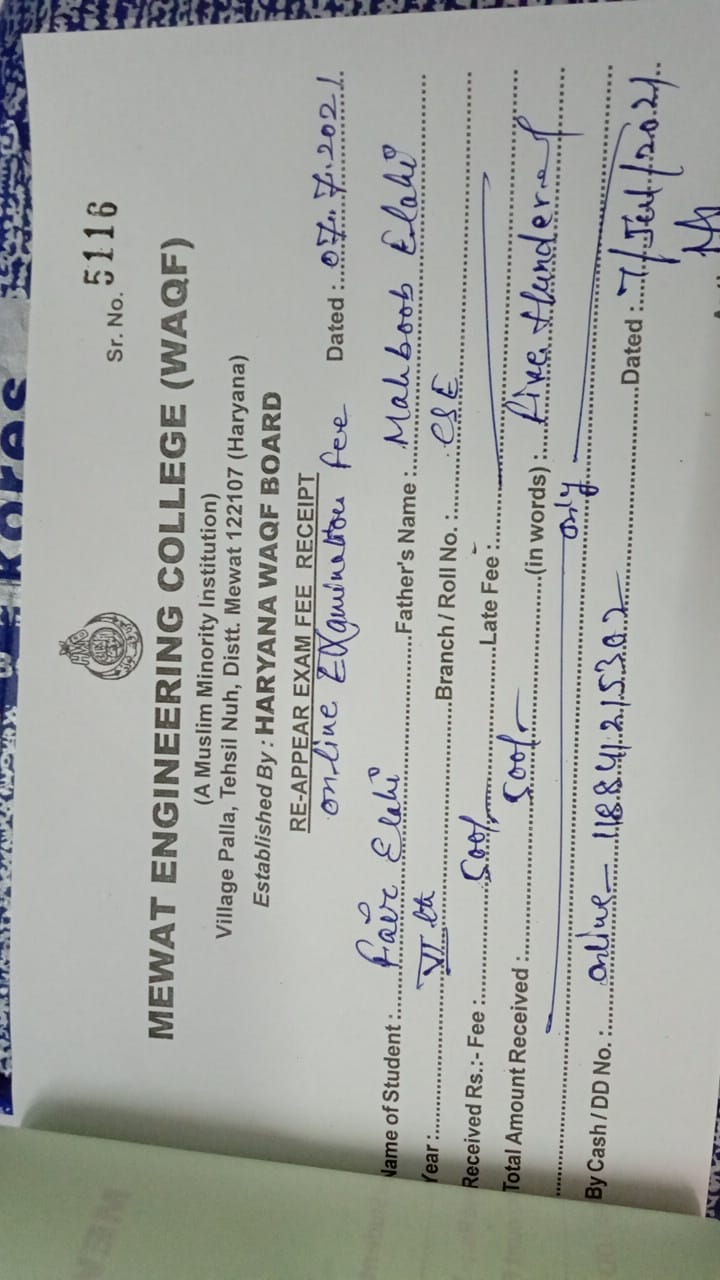 Sr. No. 5116
MEWAT ENGINEERING COLLEGE (WAQF)
(A Muslim Minority Institution)
Village Palla, Tehsil Nuh, Distt. Mewat 122107 (Haryana)
Established By : HARYANA WAQF BOARD
RE-APPEAR EXAM FEE RECEIPT
online Examination fee Dated : 07.7.2021
Name of Student : Elahi Father's Name : Mahboob Elahi
Year : VI th Branch / Roll No. : CSE
Received Rs.:- Fee : 500/- Late Fee :
Total Amount Received : 500/- (in words) : Five Hundered
only
By Cash / DD No. : online - 118841215302 Dated : 7/Jul/2021